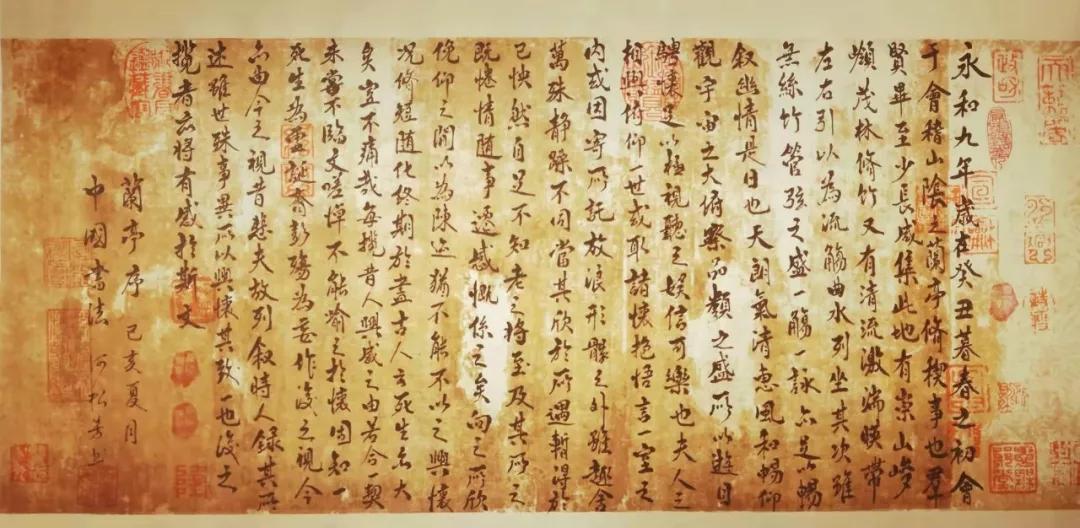 永和九年歲在癸丑暮春之初會
于會稽山陰之蘭亭脩稧事也羣
賢畢至少長咸集此地有崇山峻
嶺茂林脩竹又有清流激湍暎帶
左右引以為流觴曲水列坐其次雖
無絲竹管弦之盛一觴一詠亦足以暢
叙幽情是日也天朗氣清惠風和暢仰
觀宇宙之大俯察品類之盛所以遊目
騁懷足以極視聽之娛信可樂也夫人之
相與俯仰一世或取諸懷抱悟言一室之
內或因寄所託放浪形骸之外雖趣舍
萬殊靜躁不同當其欣於所遇暫得於
己怏然自足不知老之將至及其所之
既惓情隨事遷感慨係之矣向之所欣
俛仰之閒以為陳迹猶不能不以之興懷
況脩短隨化終期於盡古人云死生亦大
矣豈不痛哉每攬昔人興感之由若合一契
未甞不臨文嗟悼不能喻之於懷固知一
死生為虛誕齊彭殤為妄作後之視今
亦由今之視昔悲夫故列叙時人錄其所
述雖世殊事異所以興懷其致一也後之
攬者亦將有感於斯文
蘭亭序 己亥夏月
中國書法 何松